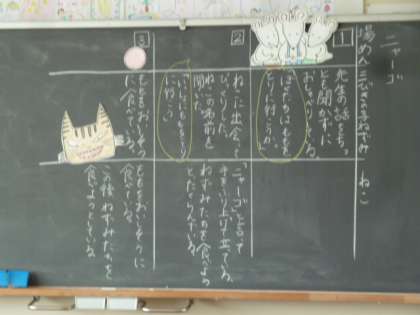 ニャーゴ
場めん 三びきの子ねずみ ねこ
1
先生の話をちっ
とも聞かずに
おしゃべりしている。
ぼくたちはももを
とりに行くんだ。
2
ねこに出会って
びっくりした。
ねこの名前を
聞いた。
に行こう。
「ニャーゴ」と言って
手をふり上げて立っている。
ねずみたちを食べようと
3
ももをおいしそう
に食べている。
ももをおいしそうに
食べている。
この後ねずみたちを
食べようとしている。